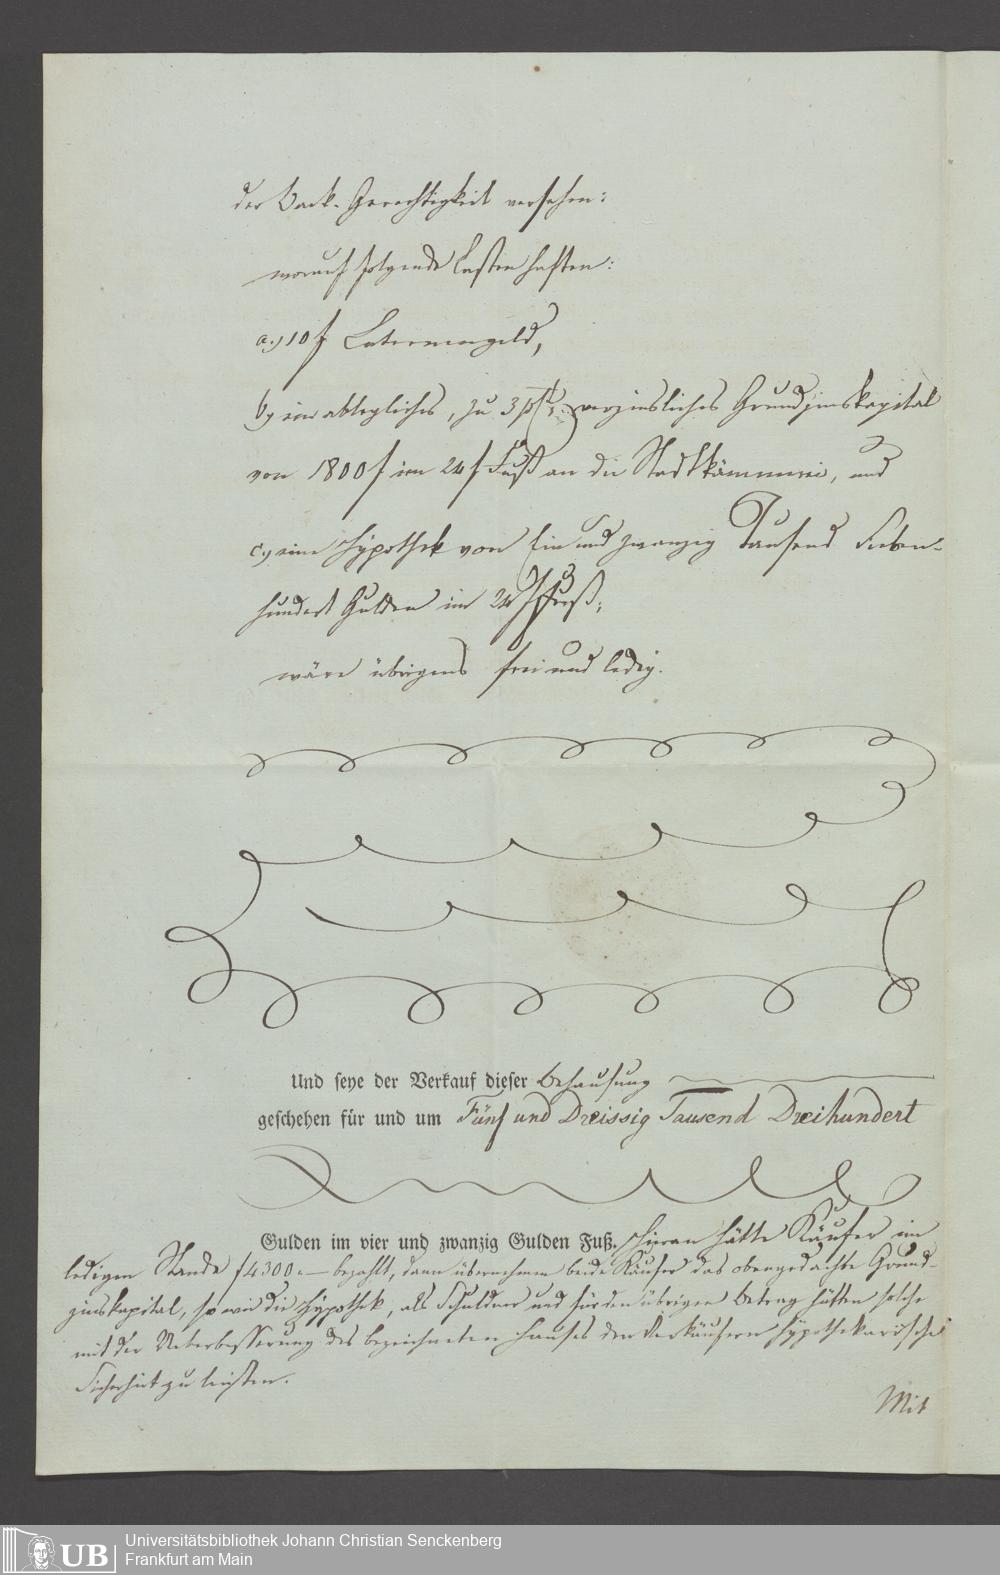 der Back-Gerechtigkeit versehen:
worauf folgende Lasten haften:
a.) 10 f Laternengeld,
b) ein ablegliches, zu 3 pCt verzinsliches Grundzinskapital
von 1800 f im 24 f Fuß an die Stadtkämmerei, und
c.) eine Hypothek von Ein und zwanzig Tausend Sieben-
hundert Gulden im 24 f Fuß;
wäre übrigens frei und ledig.
Und seye der Verkauf dieser Behausung
geschehen für und um Fünf und Dreissig Tausend Dreihundert
Gulden im vier und zwanzig Gulden Fuß. hieran hätte Käufer im
ledigen Stande f 4300.— bezahlt, dann übernehmen beide Käufer das obengedachte Grund-
zinskapital, so wie die Hypothek, als Schuldner und für den übrigen Betrag hätten solche
mit der Ueberbesserung des bezeichneten Hauses den Verkäufern hypothekarische
Sicherheit zu leisten.
Mit
UB
Universitätsbibliothek Johann Christian Senckenberg
Frankfurt am Main